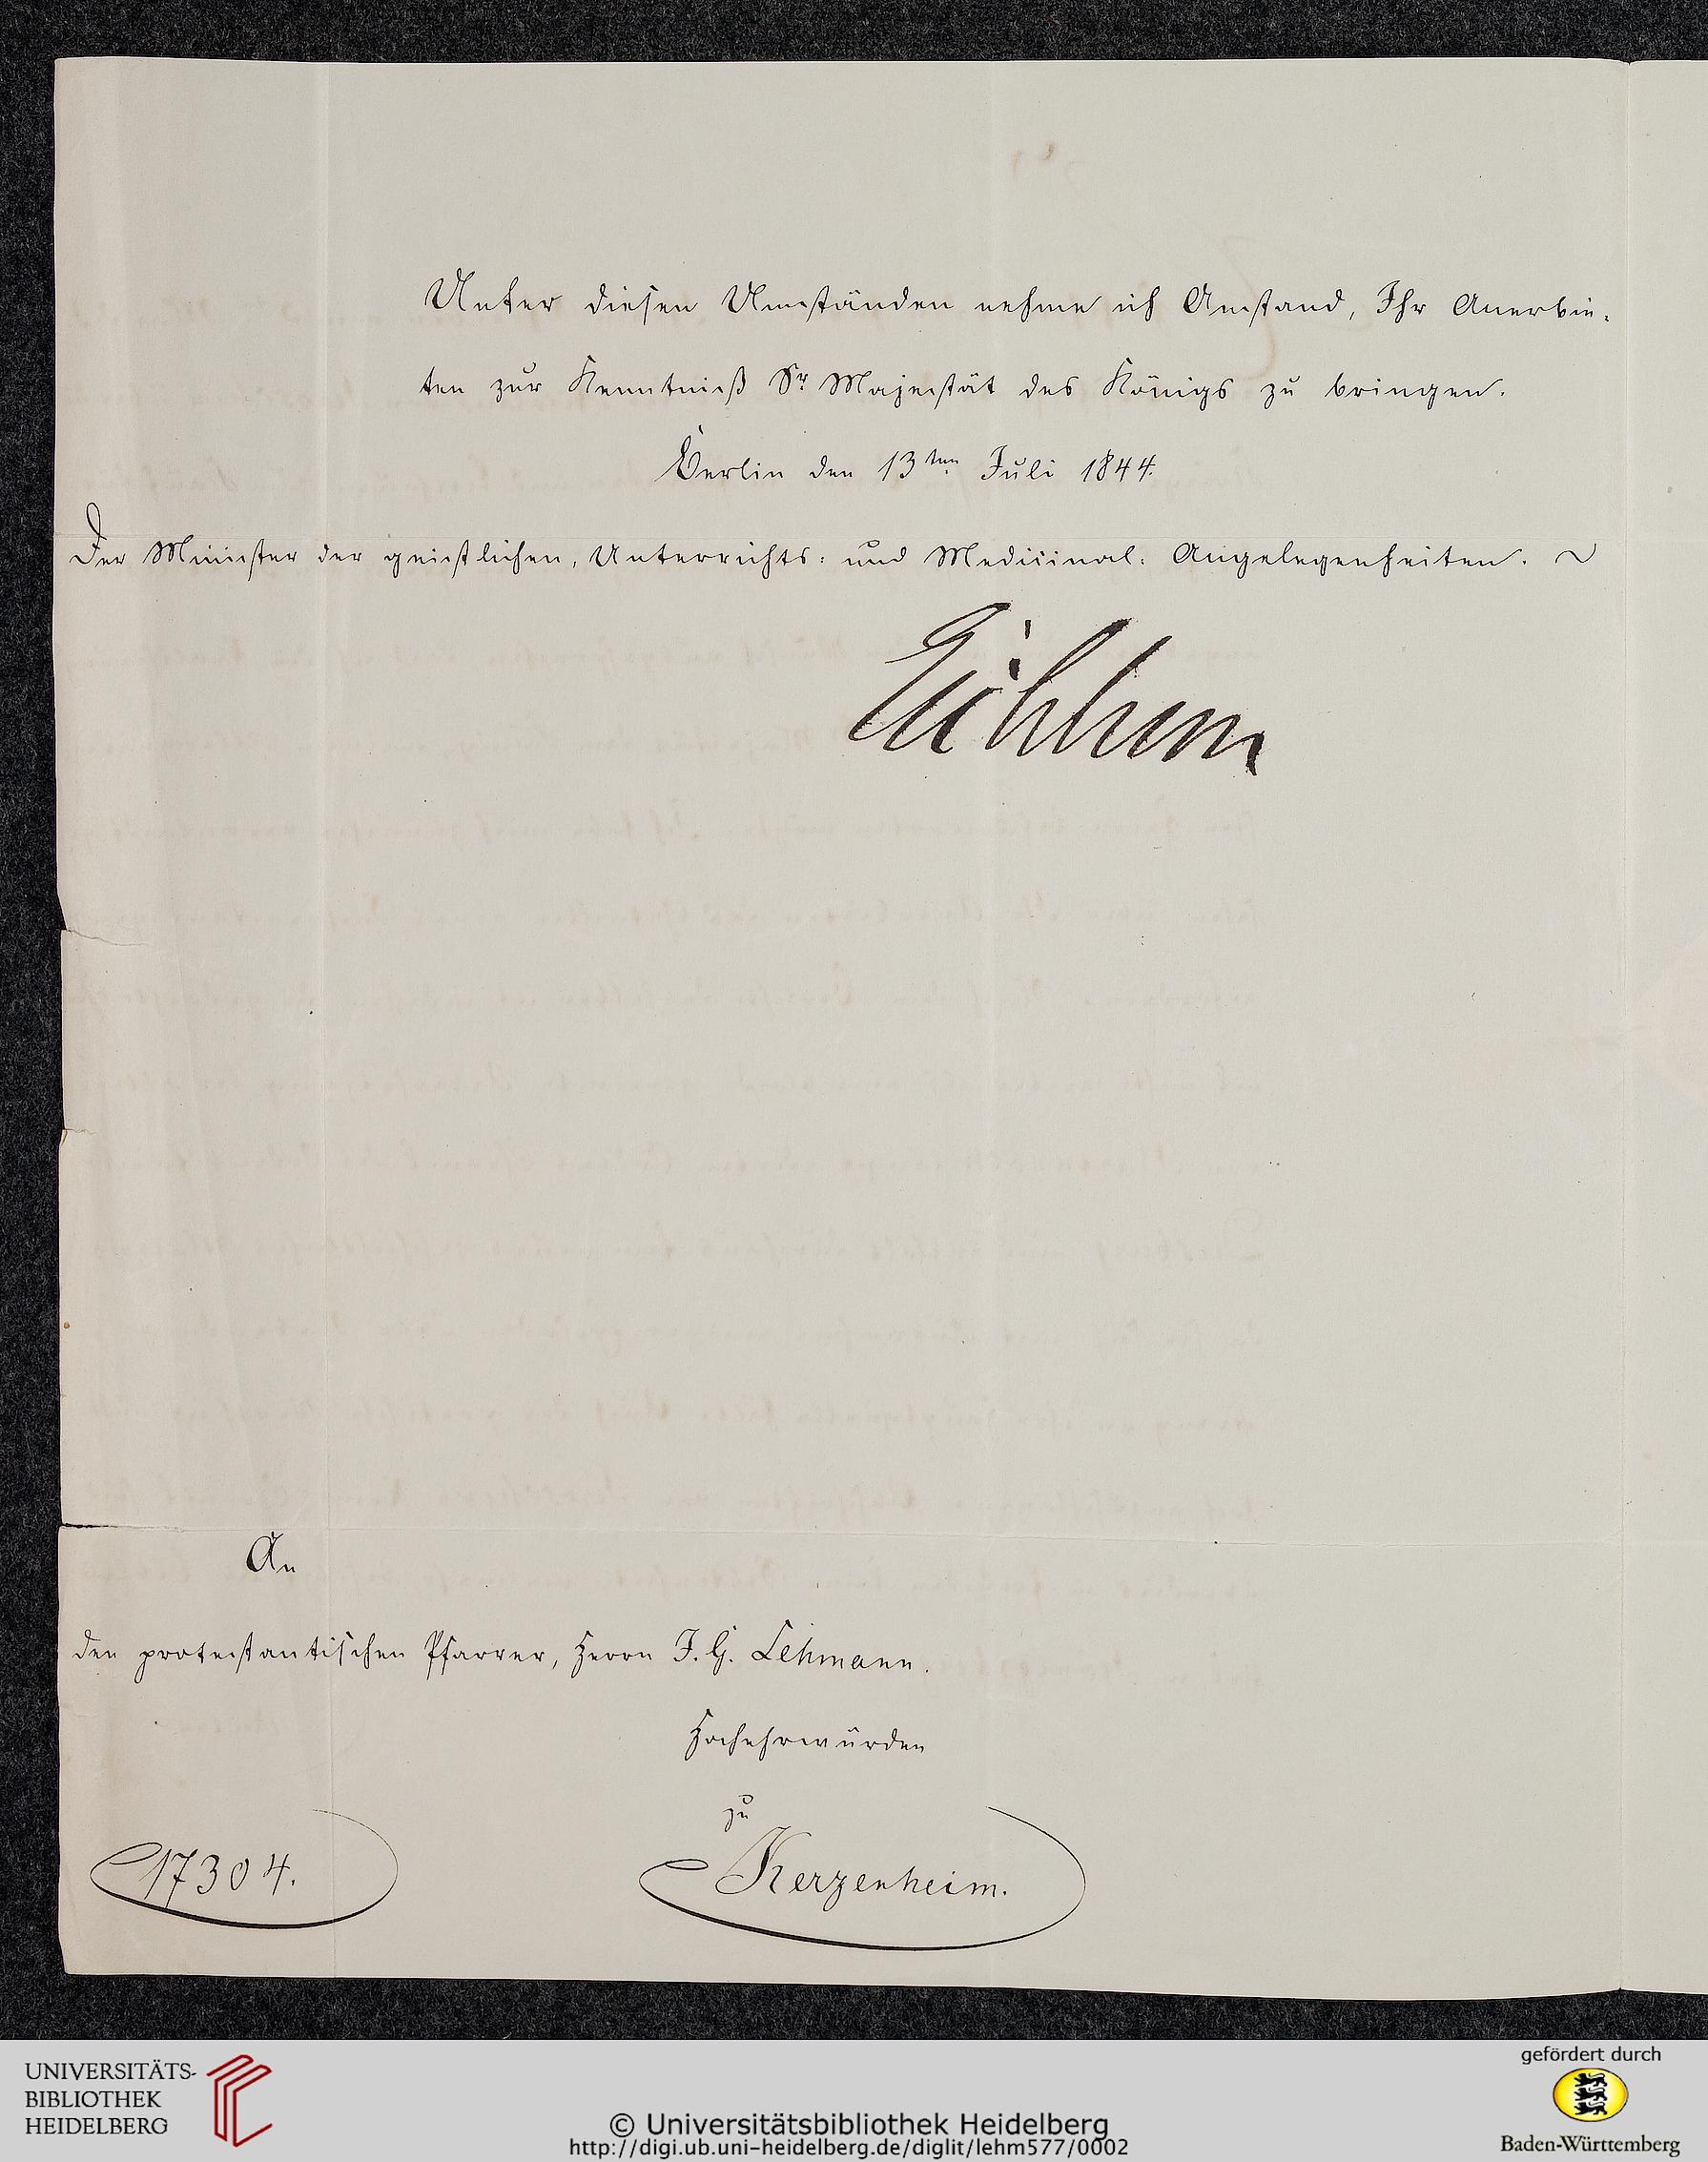 Unter diesen Umständen nehme ich Anstand, Ihr Anerbie-
ten zur Kenntniß Sr Majestät des Königs zu bringen.
Berlin den 13ten Juli 1844.
Der Minister der geistlichen, Unterrichts- und Medicinal- Angelegenheiten.
Eichhorn
An
den protestantischen Pfarrer, Herrn J. G. Lehmann.
Hochehrwürden
zu
Kerzenheim.
17304.
UNIVERSITÄTS-
BIBLIOTHEK
HEIDELBERG
© Universitätsbibliothek Heidelberg
http://digi.ub.uni-heidelberg.de/diglit/lehm577/0002
gefördert durch
Baden-Württemberg